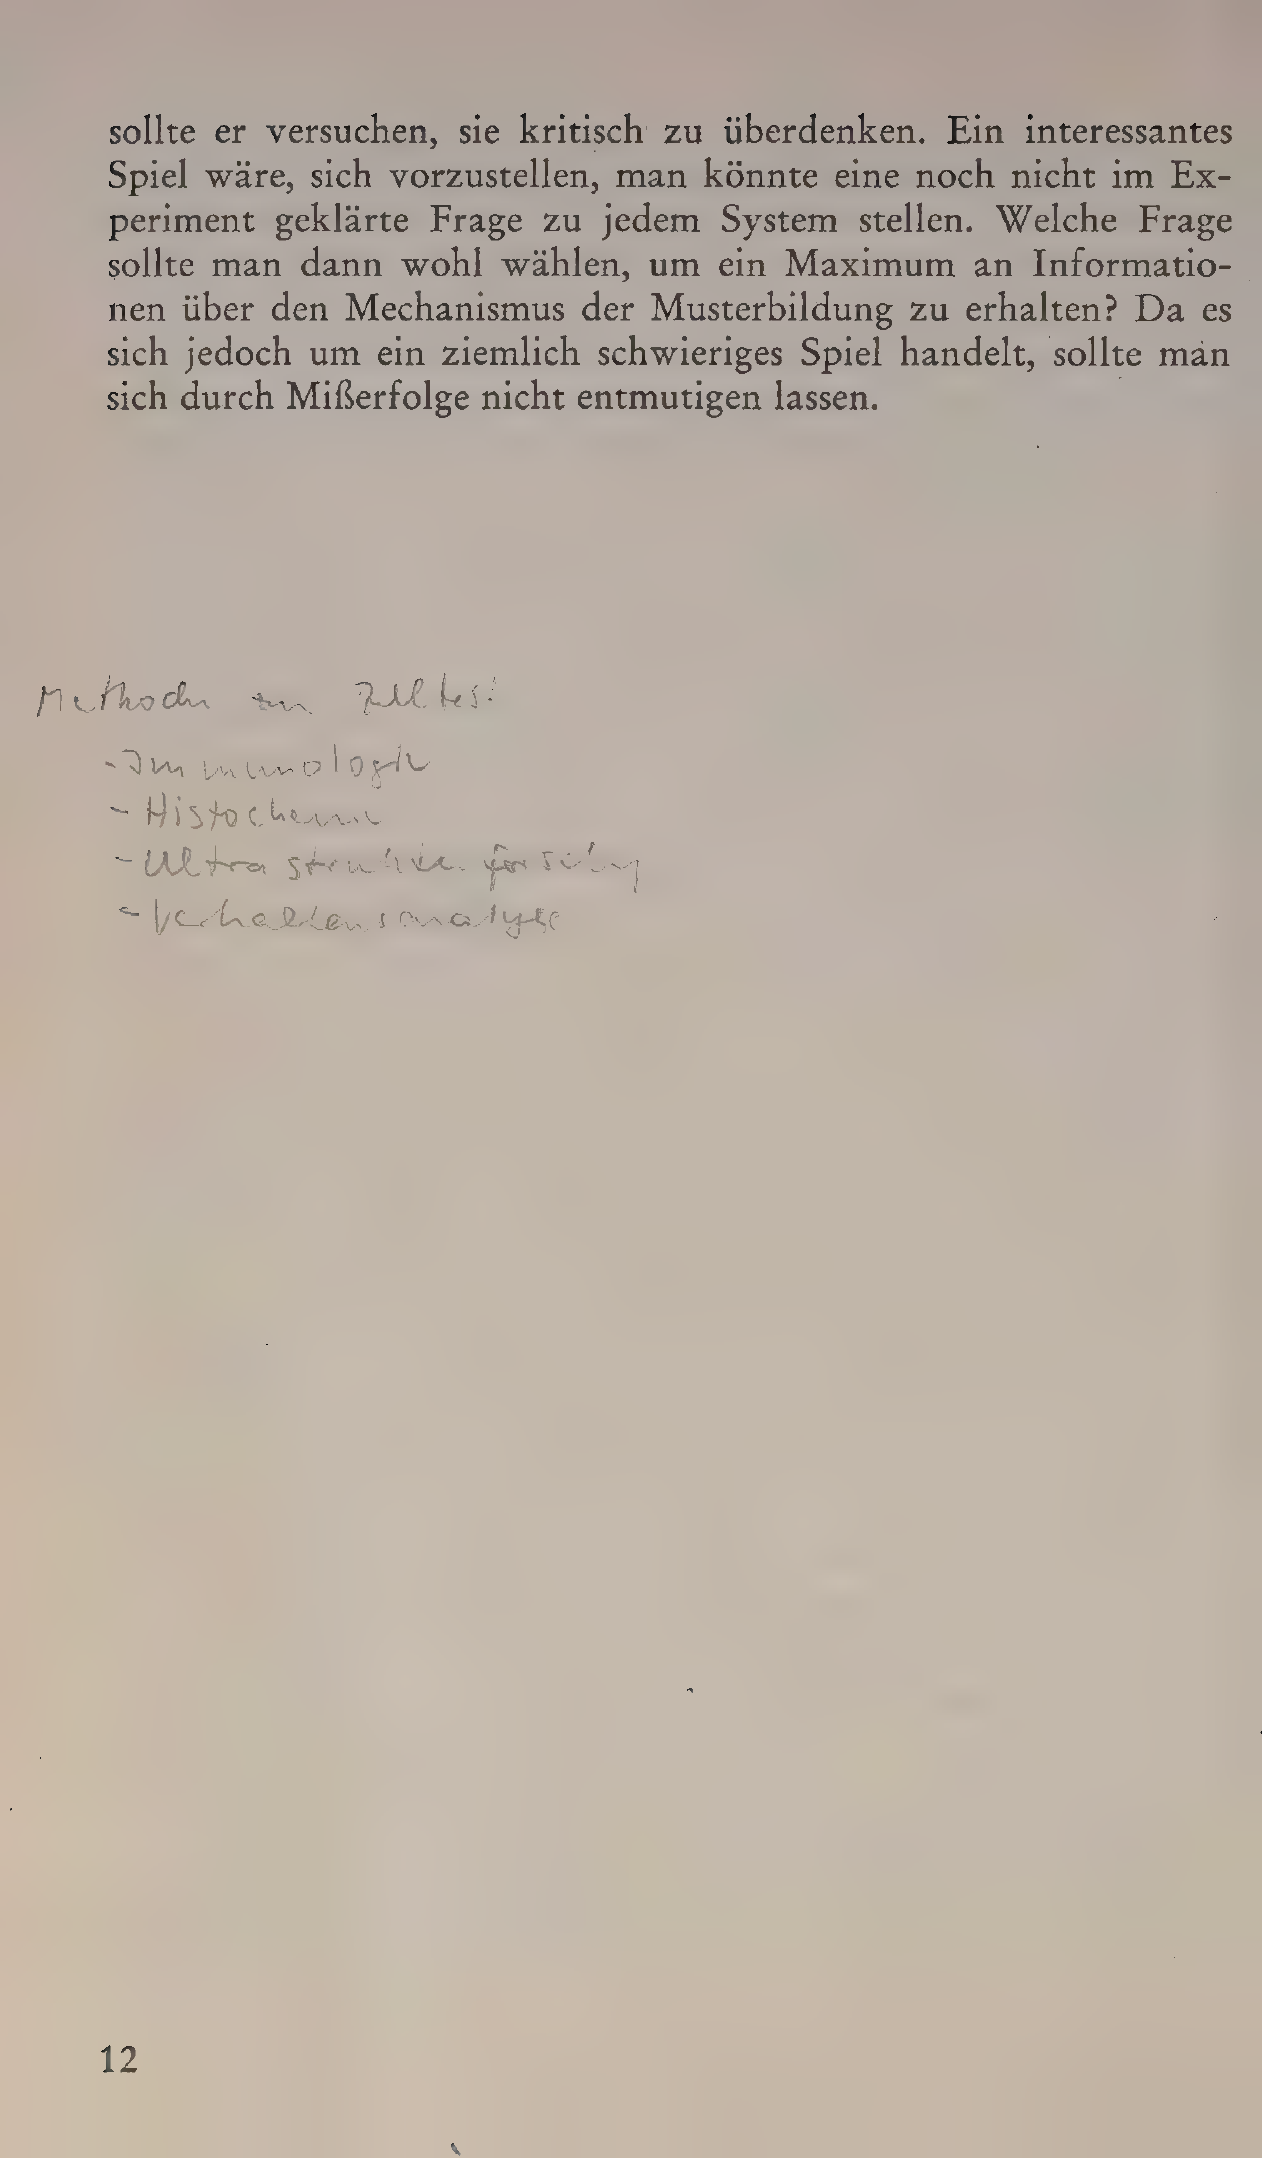 sollte er versuchen, sie kritisch zu überdenken. Ein interessantes
Spiel wäre, sich vorzustellen, man könnte eine noch nicht im Ex-
periment geklärte Frage zu jedem System stellen. Welche Frage
sollte man dann wohl wählen, um ein Maximum an Informatio-
nen über den Mechanismus der Musterbildung zu erhalten? Da es
sich jedoch um ein ziemlich schwieriges Spiel handelt, sollte man
sich durch Mißerfolge nicht entmutigen lassen.
Methoden
- Immunologie
- Histochemie
- Ultrastruktur
- Verhaltensanalyse
12